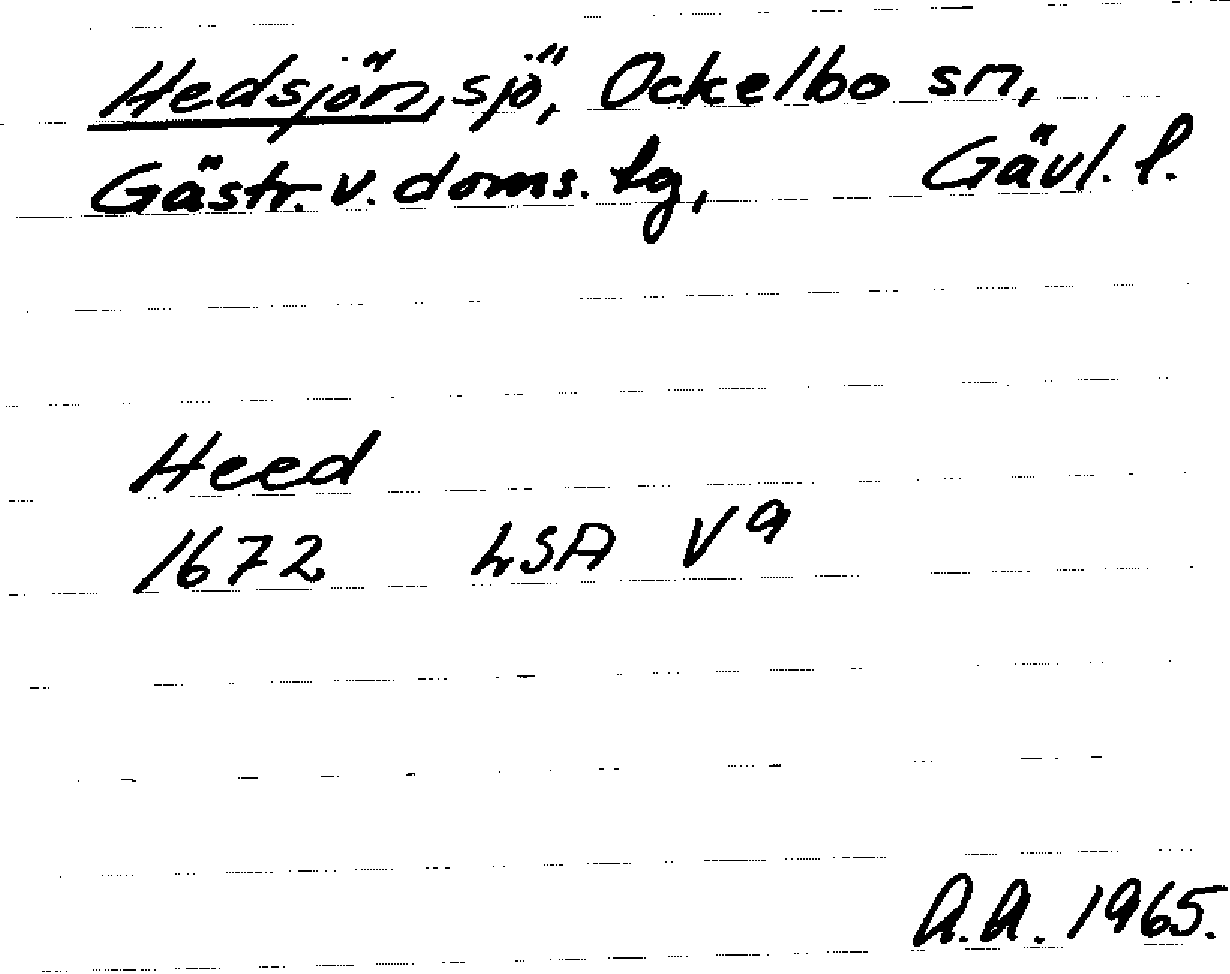 Hedsjön, sjö, Ockelbo sn,
Gästr. v. doms. lg, Gävl. l.
Heed
1672 LSA V 9
A.A. 1965.